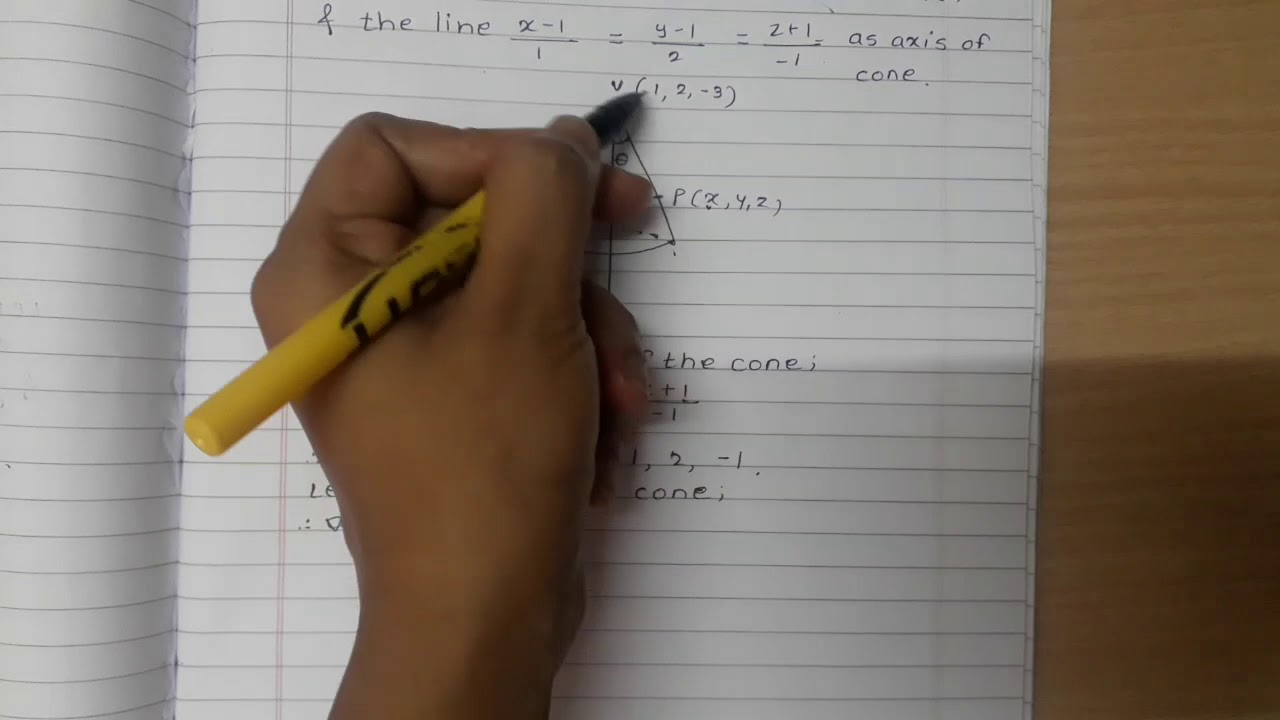 & the line x-1/1 = y-1/2 = z+1/-1 as axis of
cone.
V (1, 2, -3)
θ
P(x, y, z)
the cone;
+1/-1
1, 2, -1.
cone;
∴